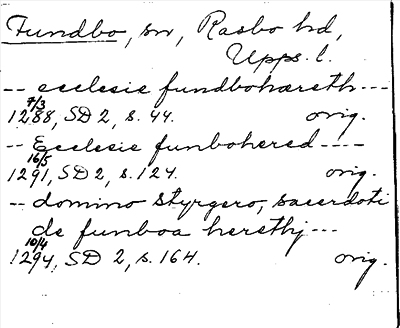 Fundbo, sn, Rasbo hd,
Upps. l.
-- ecclesie fundbohæreth ---
7/3
1288, SD 2, s. 44. orig.
-- Ecclesie funbohered ----
16/5
1291, SD 2, s. 124. orig.
-- domino Styrgero, sacerdoti
de funboa herethj ---
10/4
1294, SD 2, s. 164. orig.